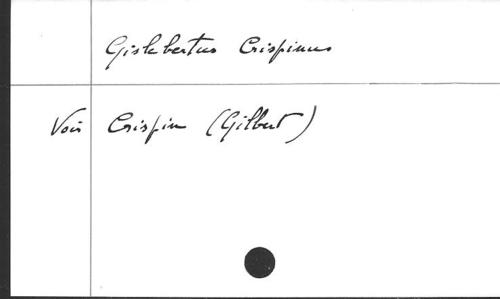 Gislebertus Crispinus
Voir Crispin (Gilbert)